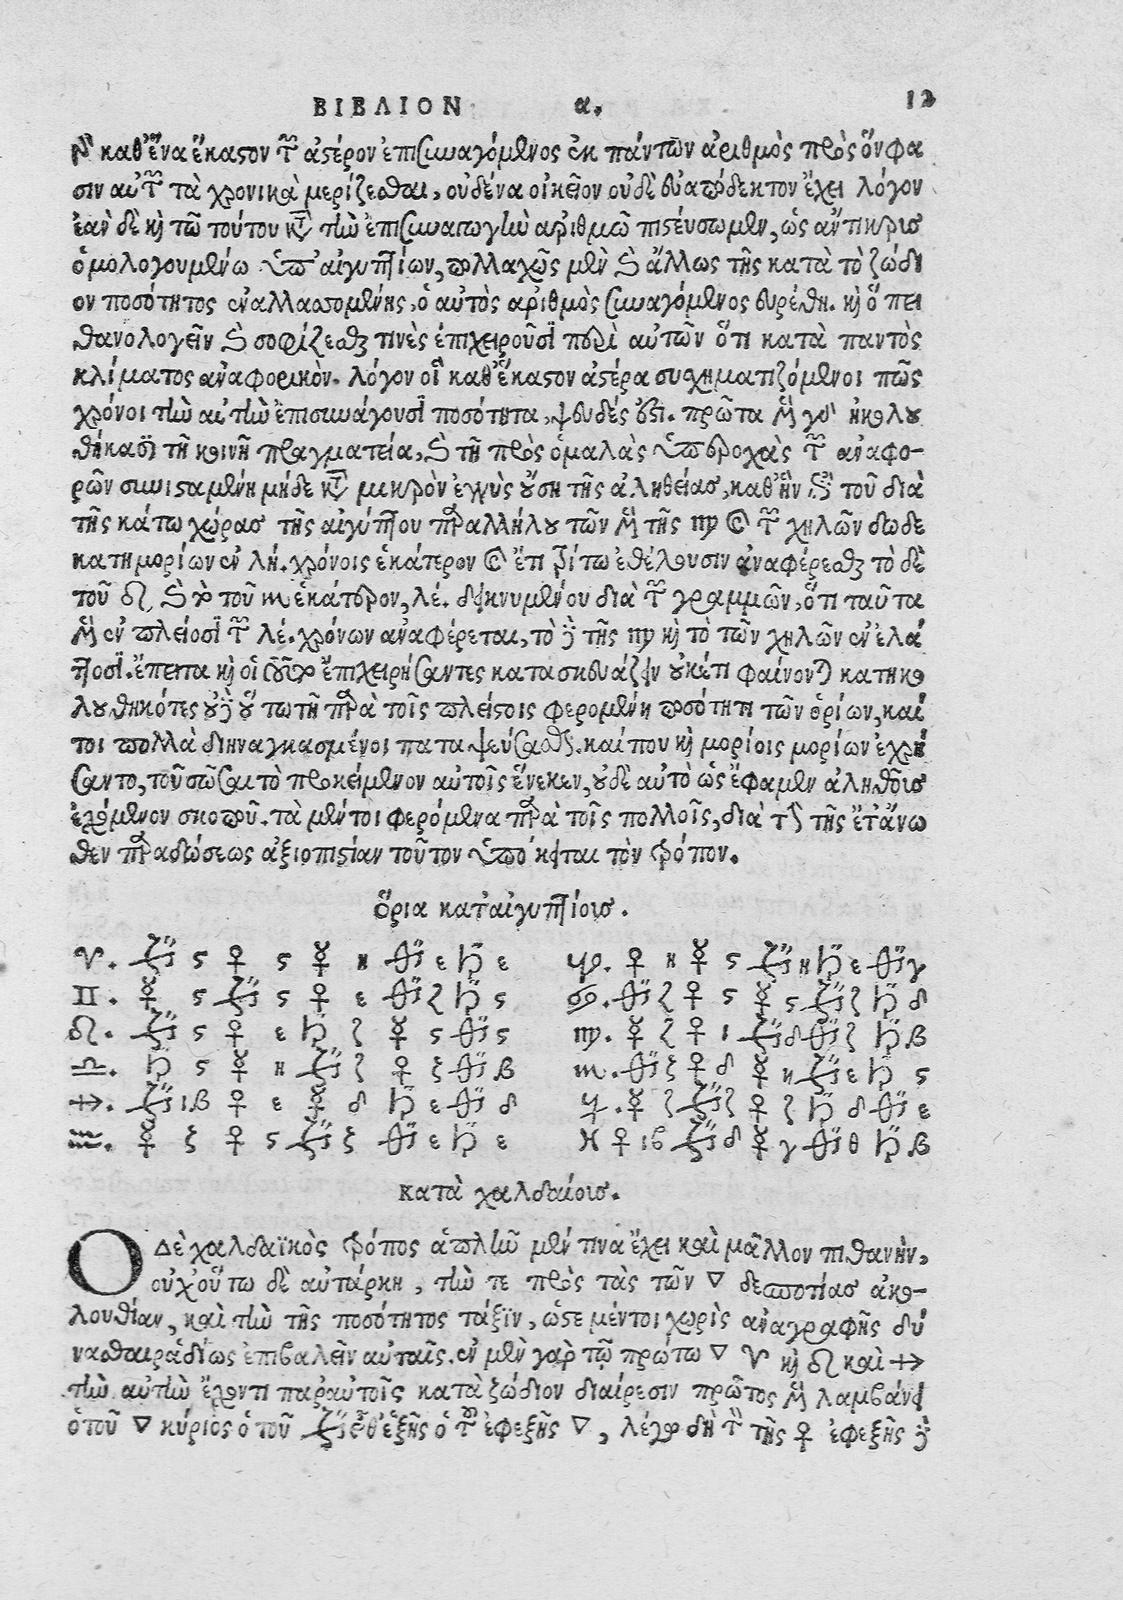 ΒΙΒΛΙΟΝ α. 12
καθ' ἕνα ἕκαστον τῶν ἀστέρων ἐπισυναγόμενος ἐκ πάντων ἀριθμὸς πρὸς ὃν φα
σιν αὐτῶν τὰ χρονικὰ μερίζεσθαι, οὐδένα οἰκεῖον οὐδὲ εὐαπόδεκτον ἔχει λόγον
ἐὰν δὲ καὶ τῶ τούτου κατὰ τὴν ἐπισυναγωγὴν ἀριθμῶ πιστεύσωμεν, ὡς ἄντικρισ
ὁμολογουμένω ὑπ' αἰγυπτίων, πολλαχῶς μὲν καὶ ἄλλως τῆς κατὰ τὸ ζώδι
ον ποσότητος ἐναλλασσομένης, ὁ αὐτὸς ἀριθμὸς συναγόμενος εὑρέθη. καὶ ὃ πει
θανολογεῖν καὶ σοφίζεσθαι τινὲς ἐπιχειροῦσι περὶ αὐτῶν ὅτι κατὰ παντὸς
κλίματος ἀναφορικὸν. λόγον οἱ καθ' ἕκαστον ἀστέρα συσχηματιζόμενοι πῶς
χρόνοι τὴν αὐτὴν ἐπισυνάγουσι ποσότητα, ψευδές ἐστι. πρῶτα μὲν γὰρ ἠκολου
θήκασι τῆ κοινῆ πραγματεία, καὶ τῆ πρὸς ὁμαλὰς ὑπεροχὰς τῶν ἀναφο-
ρῶν συνισταμένη μήδε κατὰ μικρὸν ἐγγὺς οὔση τῆς ἀληθείας, καθ' ἣν ἐπὶ τοῦ διὰ
τῆς κάτω χώρας τῆς αἰγύπτου παραλλήλου τῶν μὲν τῆς ♍ καὶ τῶν χηλῶν δωδε
κατημορίων ἐν λή. χρόνοις ἑκάτερον καὶ ἔτι τρίτω ἐθέλουσιν ἀναφέρεσθαι τὸ δὲ
τοῦ ♌ καὶ τοῦ ♏ ἑκάτερον, λέ. δεικνυμένου διὰ τῶν γραμμῶν, ὅτι ταῦτα
μὲν ἐν πλείοσι τῶν λέ. χρόνων ἀναφέρεται, τὸ δὲ τῆς ♍ καὶ τὸ τῶν χηλῶν ἐν ἐλά
ττοσι. ἔπειτα καὶ οἱ τοῦτο ἐπιχειρήσαντες κατασκευάζειν οὐκέτι φαίνονται κατηκο
λουθηκότες οὐδ' οὕτω τῆ παρὰ τοῖς πλείστοις φερομένη ποσότητι τῶν ὁρίων, καί
τοι πολλὰ διηναγκασμένοι καταψεύσασθαι. καί που καὶ μορίοις μορίων ἐχρή
σαντο, τοῦ σῶσαι τὸ προκείμενον αὐτοῖς ἕνεκεν, οὐδὲ αὐτὸ ὡς ἔφαμεν ἀληθοῦς
ἐχόμενον σκοποῦ. τὰ μέντοι φερόμενα παρὰ τοῖς πολλοῖς, διὰ τὴν τῆς ἐπάνω
θεν παραδώσεως ἀξιοπιστίαν τοῦτον ὑπόκειται τὸν τρόπον.
ὅρια κατ' αἰγυπτίουσ.
♈. ♃ ς ♀ ς ☿ η ♂ ε ♄ ε ♉. ♀ η ☿ ς ♃ η ♄ ε ♂ γ
♊. ☿ ς ♃ ς ♀ ε ♂ ζ ♄ ς ♋. ♂ ζ ♀ ς ☿ ς ♃ ζ ♄ δ
♌. ♃ ς ♀ ε ♄ ζ ☿ ς ♂ ς ♍. ☿ ζ ♀ ι ♃ δ ♂ ζ ♄ β
♎. ♄ ς ☿ η ♃ ζ ♀ ξ ♂ β ♏. ♂ ξ ♀ δ ☿ η ♃ ε ♄ ς
♐. ♃ ιβ ♀ ε ☿ δ ♄ ε ♂ δ ♑. ☿ ζ ♃ ζ ♀ ζ ♄ δ ♂ ε
♒. ☿ ξ ♀ ς ♃ ξ ♂ ε ♄ ε ♓ ♀ ιβ ♃ δ ☿ γ ♂ θ ♄ β
κατὰ χαλδαίουσ.
Ο Δὲ χαλδαϊκὸς τρόπος ἁπλῆν μέν τινα ἔχει καὶ μᾶλλον πιθανὴν,
οὐχ οὕτω δὲ αὐτάρκη, τήν τε πρὸς τὰς τῶν ▽ δεσποτίασ ἀκο-
λουθίαν, καὶ τὴν τῆς ποσότητος τάξιν, ὥστε μέντοι χωρὶς ἀναγραφῆς δύ
νασθαι ῥαδίως ἐπιβαλεῖν αὐταῖς. ἐν μὲν γὰρ τῷ πρώτω ▽ ♈ καὶ ♌ καὶ ♐
τὴν αὐτὴν ἔχοντι παρ' αὐτοῖς κατὰ ζώδιον διαίρεσιν πρῶτος μὲν λαμβάνει
ὁ τοῦ ▽ κύριος ὁ τοῦ ♃ εἶθ' ἑξῆς ὁ τοῦ ἐφεξῆς ▽, λέγω δὴ τὸν τῆς ♀ ἐφεξῆς δὲ